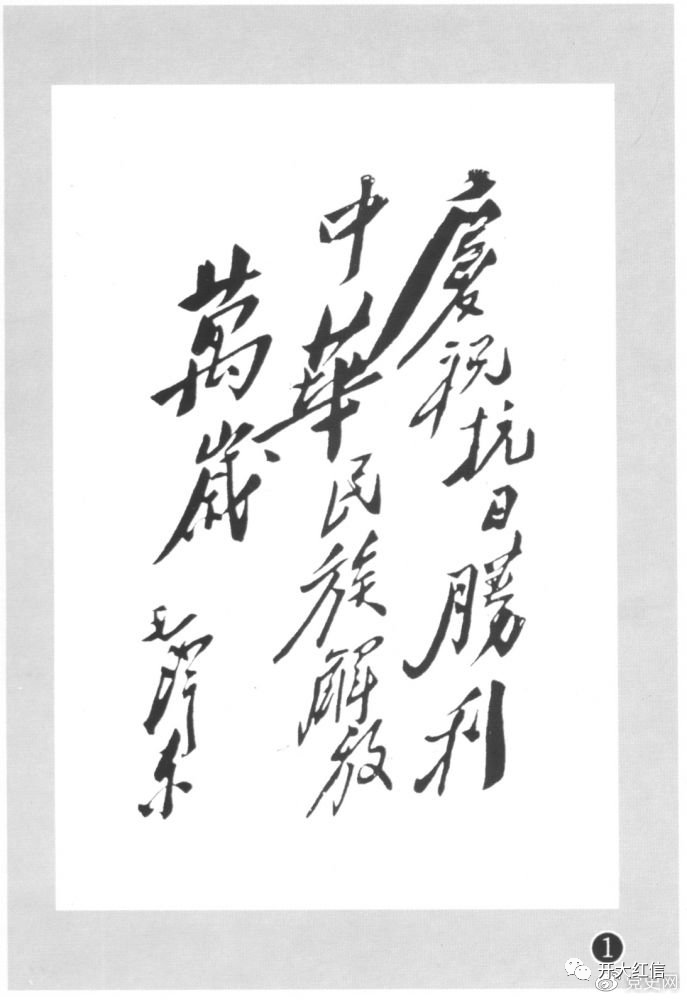 慶祝抗日勝利
中華民族解放
萬歲
毛澤东
1
开大红信
党史网